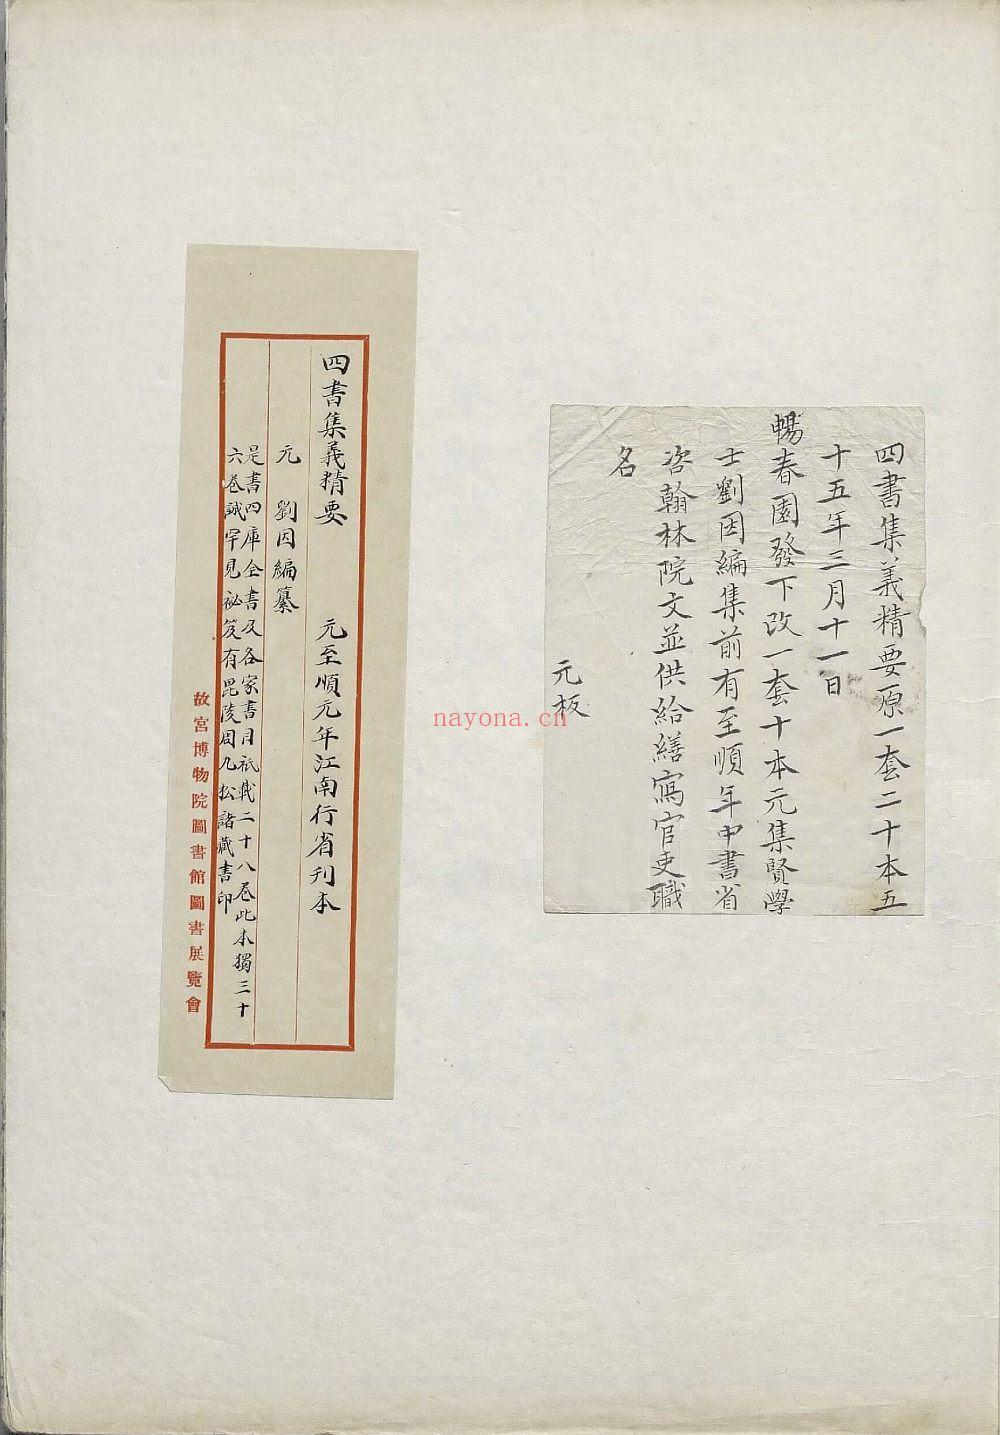 四書集義精要原一套二十本五
十五年三月十一日
暢春園發下改一套十本元集賢學
士劉因編集前有至順年中書省
咨翰林院文並供給繕寫官吏職
名
元板
四書集義精要 元至順元年江南行省刊本
元 劉因編纂
是書四庫全書及各家書目祇載二十八卷此本獨三十
六卷誠罕見祕笈有毘陵周九松諸藏書印
故宮博物院圖書館圖書展覽會
nayona.cn